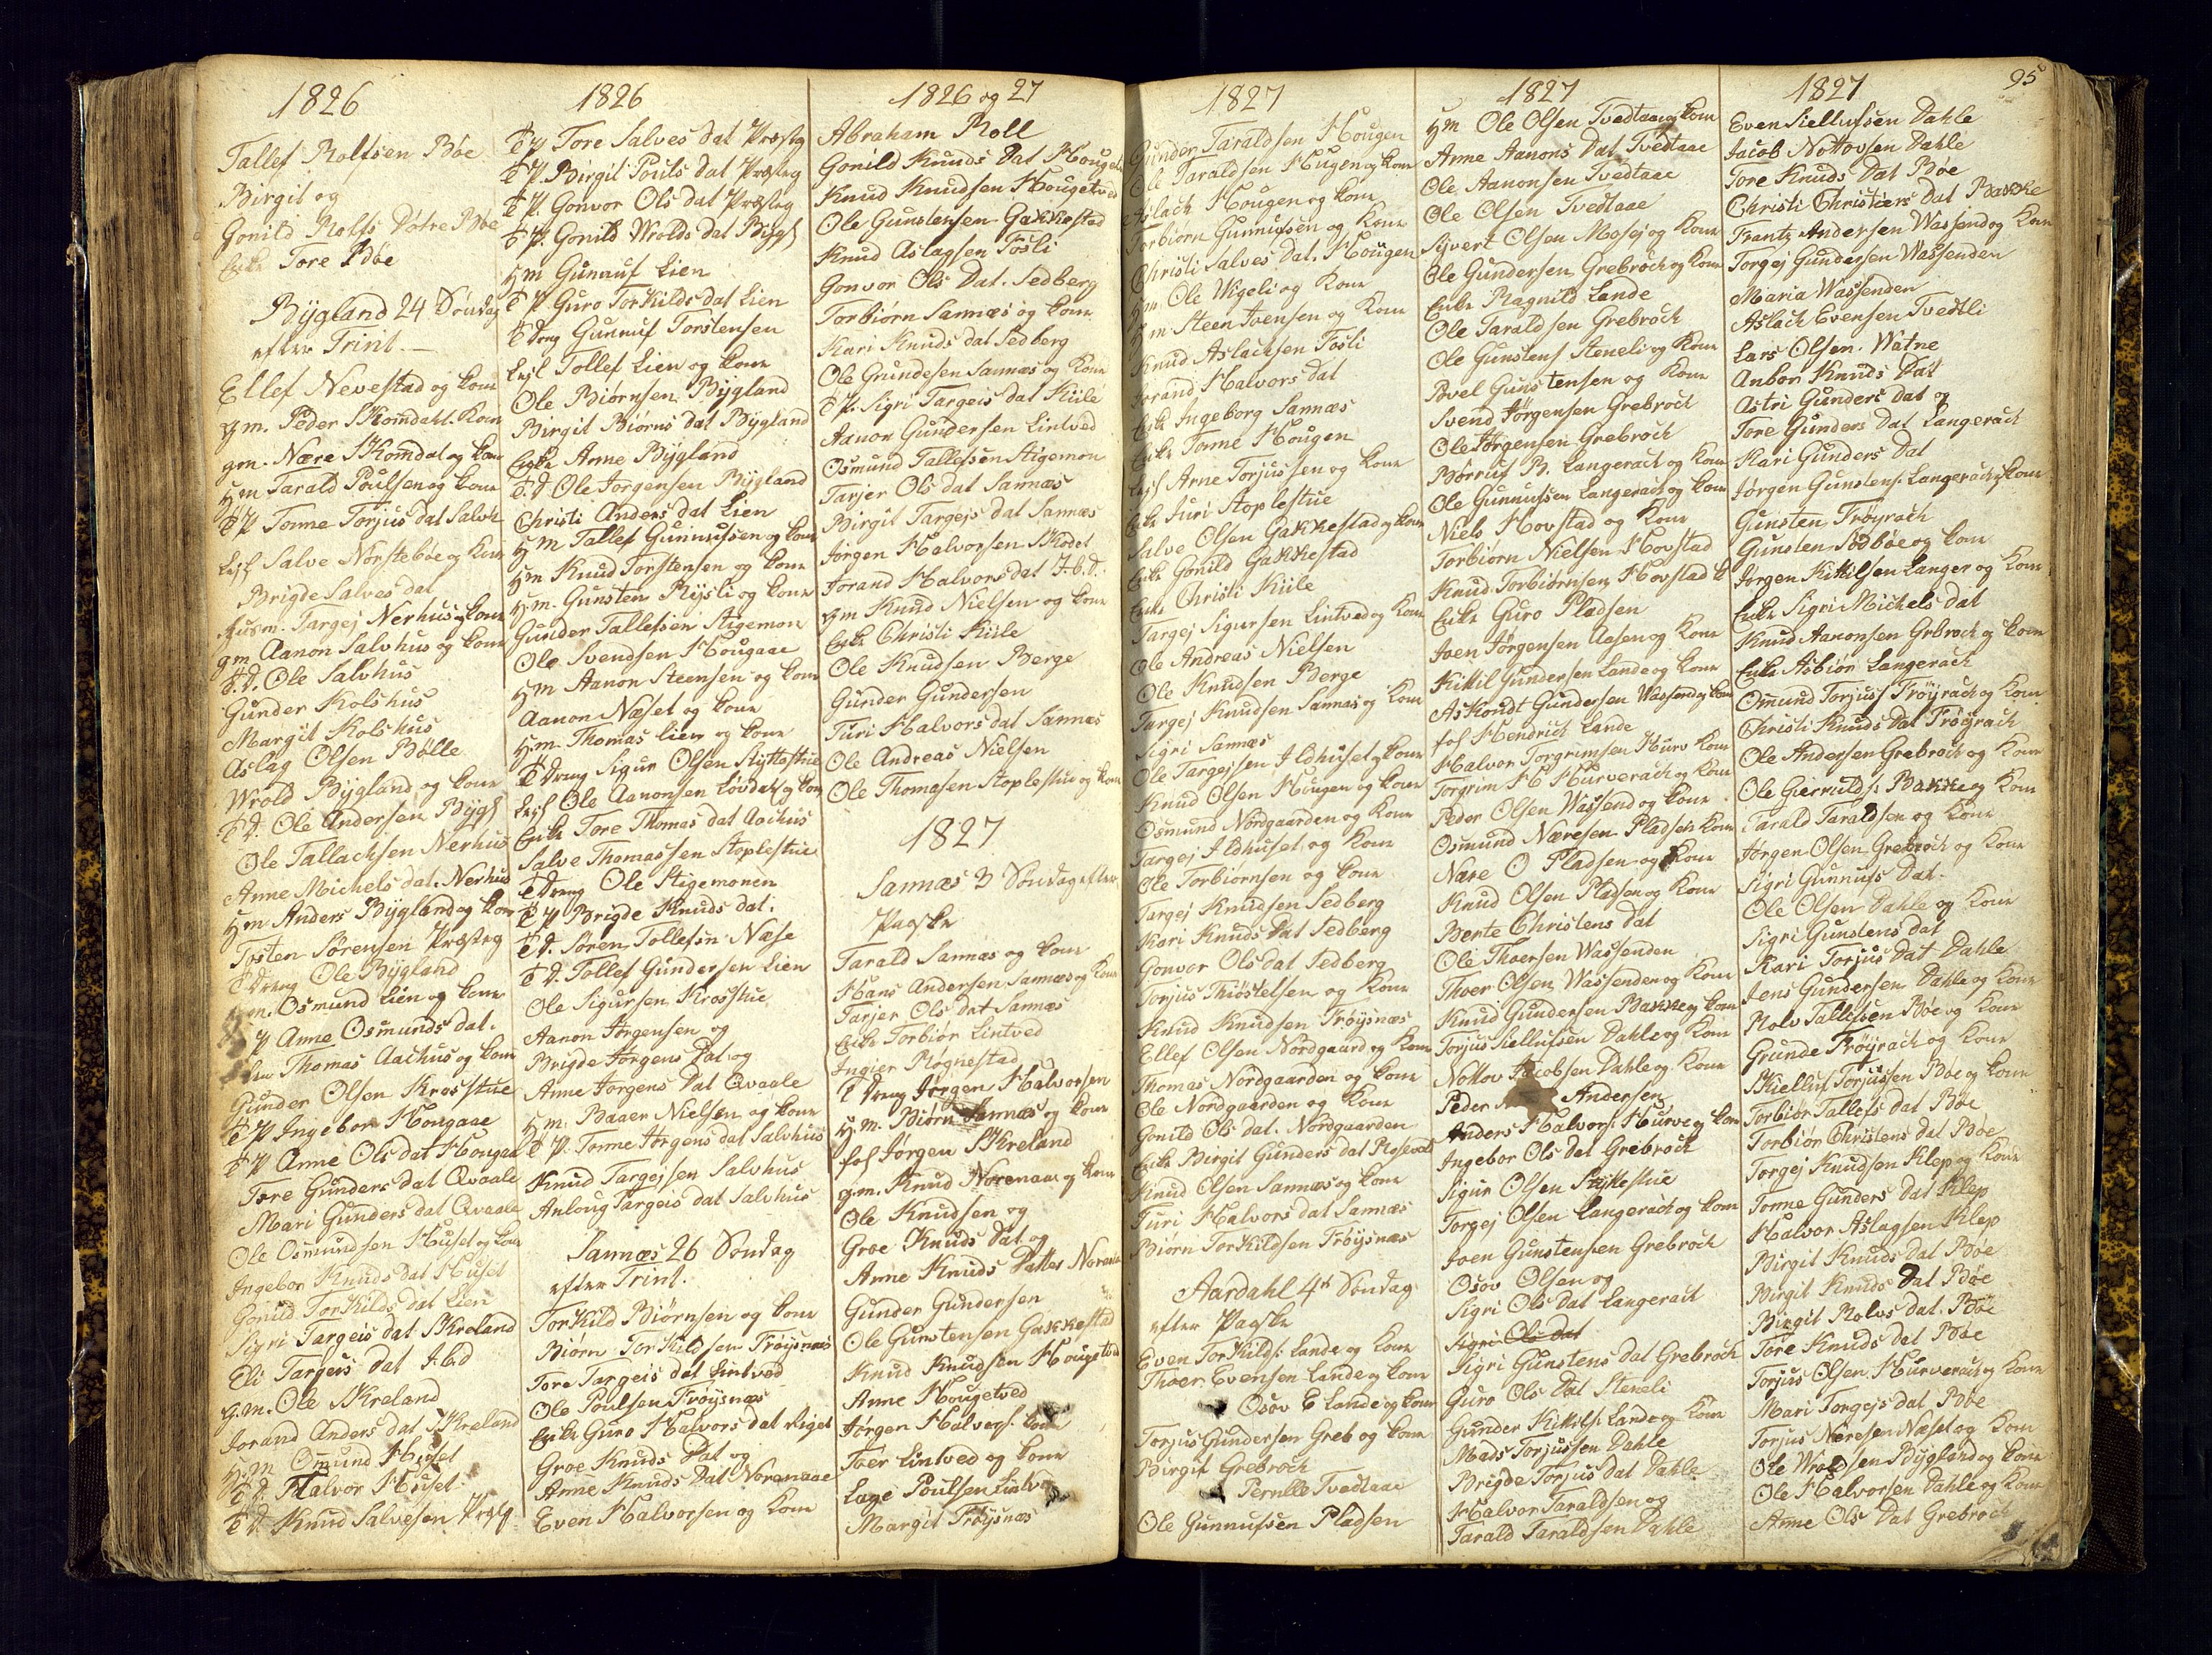 1826
Tallef Rolfsen Bøe
Birgit og
Gonild Rolfs Døtre Bøe
Enke Tore Bøe
Bygland 24 Søndag
efter Trinit.
Ellef Nevestad og kone
gm. Peder Skomdahl. Kone
gm. Nære Skomdal og kone
Hm Tarald Poulsen og kone
T P Tonne Torjus dat Salvh
Lejl Salve Nørstebøe og kone
Brigde Salves dat
Husm. Targej Nerhus og kone
gm Aanon Salvhus og kone
T. D. Ole Salvhus
Gunder Kolshus
Margit Kolshus
Aslag Olsen Bølle
Wrold Bygland og kone
T D. Ole Andersen Bygl
Ole Tallachsen Nerhus
Anne Michels dat. Nerhus
Hm Anders Bygland og kone
Tosten Sørensen Præsteg
T Dreng Ole Bygland
gm. Osmund Lien og kone
P Anne Osmunds dat.
Thomas Aachus og kone
Gunder Olsen Krosstue
T P Ingebor Hougaae
T P Anne Ols dat Hougaa
Tore Gunders dat Qvaale
Mari Gunders dat Qvaale
Ole Osmundsen Huset og kone
Ingebor Knuds dat Huset
Gonild Torkilds dat Lien
Sigri Targeis dat Skreland
Eli Targeis dat Ibid
g.m. Ole Skreland
Jorand Anders dat Skreland
H.m Osmund Huset
T D. Halvor Huset
T D. Knud Salvesen Præstg
1826
T P Tore Salves dat Præstg
T P. Birgit Pouls dat Præsteg
T P. Gonvor Ols dat Præsteg
T P. Gonild Wrolds dat Bygl
Hm Gunnuf Lien
T P. Guro Torkilds dat Lien
T Dreng Gunnuf Torstensen
Lejl Tollef Lien og kone
Ole Biørnsen Bygland
Birgit Biørns dat Bygland
Enke Anne Bygland
T. D Ole Jørgensen Bygland
Christi Anders dat Lien
H M Tallef Gunnufsen og kone
Hm Knud Torstensen og kone
H.m. Gunsten Rysli og kone
Gunder Tallefsen Stigemon
Ole Svendsen Hougaae
Hm Aanon Steensen og kone
Aanon Næset og kone
H.m. Thomas Lien og kone
T Dreng Sigur Olsen Styttestue
Lejl Ole Aanonsen Løvdal og kone
Enke Tore Thomas dat Aachus
Salve Thomassen Stoplestue
T Dreng Ole Stigemonen
T P Brigde Knuds dat.
T D. Søren Tollefsn Næse
T D. Tollef Gundersen Lien
Ole Sigursen Krosstue
Aanon Jørgensen og
Brigde Jørgens dat og
Anne Jørgens dat Qvaale
Hm. Baaer Nielsen og kone
T P. Tonne Jørgens dat Salvhus
Knud Targejsen Salvhus
Anloug Targeis dat Salvhus
Sannæs 26 Søndag
efter Trint.
Torkild Biørnsen og kone
Biørn Torkildsen Frøysnæs
Tore Targeis dat Lintved
Ole Poulsen Frøysnæs
Enke Guro Halvors dat Liget
Groe Knuds dat og
Anne Knuds dat Norenaae
Even Halvorsen og kone
1826 og 27
Abraham Roll
Gonild Knuds dat Hougen
Knud Knudsen Hougetved
Ole Gunstensen Gakkestad
Knud Aslagsen Fosli
Gonvor Ols Dat. Sedberg
Torbiørn Sannæs og kone
Kari Knuds dat Sedberg
Ole Grundesen Sannæs og kone
T P. Sigri Targeis dat Kiile
Aanon Gundersen Lintved
Osmund Tallefsen Stigemon
Tarjer Ols dat Sannæs
Birgit Targejs dat Sannæs
Jørgen Halvorsen Skodet
Jorand Halvors dat I.b.d.
gm Knud Nielsen og kone
Enke Christi Kiile
Ole Knudsen Berge
Gunder Gundersen
Turi Halvors dat Sannæs
Ole Andreas Nielsen
Ole Thomasen Stoplestue og kone
1827
Sannæs 3 Søndag efter
Paaske
Tarald Sannæs og kone
Hans Andersen Sannæs og kone
Tarjer Ols dat Sannæs
Enke Torbiør Lintved
Ingier Rognestad
T Dreng Jørgen Halvorsen
H.m. Biørn Sannæs og kone
fol Jørgen Skreland
g.m. Knud Norenaae og kone
Ole Knudsen og
Groe Knuds dat og
Anne Knuds Datter Norena
Gunder Gundersen
Ole Gunstensen Gakkestad
Knud Knudsen Hougetved
Anne Hougetved
Jørgen Halvors. kone
Toer Lintved og kone
Lage Poulsen Lintv
Margit Frøysnæs
1827
Gunder Taraldsen Hougen
Ole Taraldsen Hougen og kone
Aslach Hougen og kone
Torbiørn Gunnufsen og kone
Christi Salves Dat. Hougen
Hm Ole Wigeli og kone
H m. Steen Joensen og kone
Knud Aslachsen Fosli
Jorand Halvors dat
Enke Ingeborg Sannæs
Enke Tonne Hougen
Lejl Arne Torjussen og kone
Enke Juri Stoplestue
Salve Olsen Gakkestad og kone
Enke Gonild Gakkestad
Enke Christi Kiile
Targej Sigursen Lintved og kone
Ole Andreas Nielsen
Ole Knudsen Berge
Targej Knudsen Sannæs og kone
Sigri Sannæs
Ole Targejsen Ildhuset og kone
Knud Olsen Hougen og kone
Osmund Nordgaarden og kone
Targej Ildhuset og kone
Ole Torbiornsen og kone
Targej Knudsen Sedberg
Kari Knuds dat Sedberg
Gonvor Ols dat Sedberg
Torjus Thiostelsen og kone
Knud Knudsen Frøysnæs
Ellef Olsen Nordgaard og kone
Thomas Nordgaarden og kone
Ole Nordgaarden og kone
Gonild Ols dat. Nordgaarden
Enke Birgit Gunders dat Rosevold
Knud Olsen Sannæs og kone
Turi Halvors dat Sannæs
Biørn Torkildsen Frøysnæs
Aardahl 4de Søndag
efter Paaske
Even Torkilds. Lande og kone
Thoer Evensen Lande og kone
Osov E Lande og kone
Torjus Gundersen Greb og kone
Birgit Grebrock
Pernille Tvedtaae
Ole Gunnufsen Pladsen
1827
Hm Ole Olsen Tvedtaae og kone
Anne Aanons Dat Tvedtaae
Ole Aanonsen Tvedtaae
Ole Olsen Tvedtaae
Syvert Olsen Mosej og kone
Ole Gundersen Grebroch og kone
Enke Ragnild Lande
Ole Taraldsen Grebroch
Ole Gunstens Steneli og kone
Povel Gunstensen og kone
Svend Jørgensen Grebrock
Ole Jørgensen Grebroch
Børruf B. Langerach og kone
Ole Gunnufsen Langerach og kone
Niels Hovstad og kone
Torbiørn Nielsen Hovstad
Knud Torbiørnsen Hovstad
Enke Guro Pladsen
Joen Jørgensen Aasen og kone
Kittil Gundersen Lande og kone
Askoudt Gundersen Wassend og kone
fol Hendrich Lande
Halvor Torgrimsen Hurv kone
Torgrim H Hurverach og kone
Peder Olsen Wassend og kone
Osmund Næresen Pladsen kone
Nære O Pladsen og kone
Knud Olsen Pladsen og kone
Berte Christens dat
Ole Thoersen Wassenden
Thoer Olsen Wassenden og kone
Knud Gundersen Bakke og kone
Torjus Kellufsen Dahle og kone
Nottov Jacobsen Dahle og kone
Peder Andersen
Anders Halvors. Hurve og kone
Ingebor Ols dat Grebrock
Sigur Olsen Stykestue
Torgej Olsen Langerach og kone
Joen Gunstensen Grebroch
Osov Olsen og
Sigri Ols dat Langerach
Sigri Ols dat
Sigri Gunstens dat Grebroch
Guro Ols Dat Steneli
Gunder Kittils. Lande og kone
Mads Torjussen Dahle
Brigde Torjus Dat Dahle
Halvor Taraldsen og
Tarald Taraldsen Dahle
1827
95
Even Kellufsen Dahle
Jacob Nottovsen Dahle
Tore Knuds Dat Bøe
Christi Christiers dat Bakke
Frantz Andersen Wassend og kone
Torgej Gundersen Wassenden
Maria Wassenden
Aslach Evensen Tvedtli
Lars Olsen. Watne
Anbor Knuds dat
Astri Gunders dat og
Tore Gunders dat Langerach
Kari Gunders Dat
Jørgen Gunstens. Langerach og kone
Gunsten Frøyrach
Gunsten Sødbøe og kone
Jørgen Kittilsen Langer og kone
Enke Sigri Michels dat
Knud Aanonsen Grbroch og kone
Enke Asbiør Langerach
Osmund Torjuss Frøyrach og kone
Christi Knuds dat Frøyrach
Ole Andersen Grebroch og kone
Ole Gierrulds. Bakke og kone
Tarald Taraldsen og kone
Jørgen Olsen Grebroch og kone
Sigri Gunnufs Dat.
Ole Olsen Dahle og kone
Sigri Gunstens dat
Kari Torjus Dat Dahle
Jens Gundersen Dahle og kone
Rolv Tallefsen Bøe og kone
Grunde Frøyrach og kone
Skielluf Torjussen Bøe og kone
Torbiør Tallefs dat Bøe
Torbiør Christens dat Bøe
Torgej Knudsen Klep og kone
Tonne Gunders dat Klep
Halvor Aslagsen Klep
Birgit Knuds dat Bøe
Birgit Knuds Dat Bøe
Birgit Rolvs dat. Bøe
Tore Knuds dat Bøe
Torjus Olsen Hurverach og kone
Mari Torgejs dat Bøe
Torjus Næresen Næset og kone
Ole Wroldsen Bygland og kone
Ole Halvorsen Dahle og kone
Anne Ols Dat Grebroch